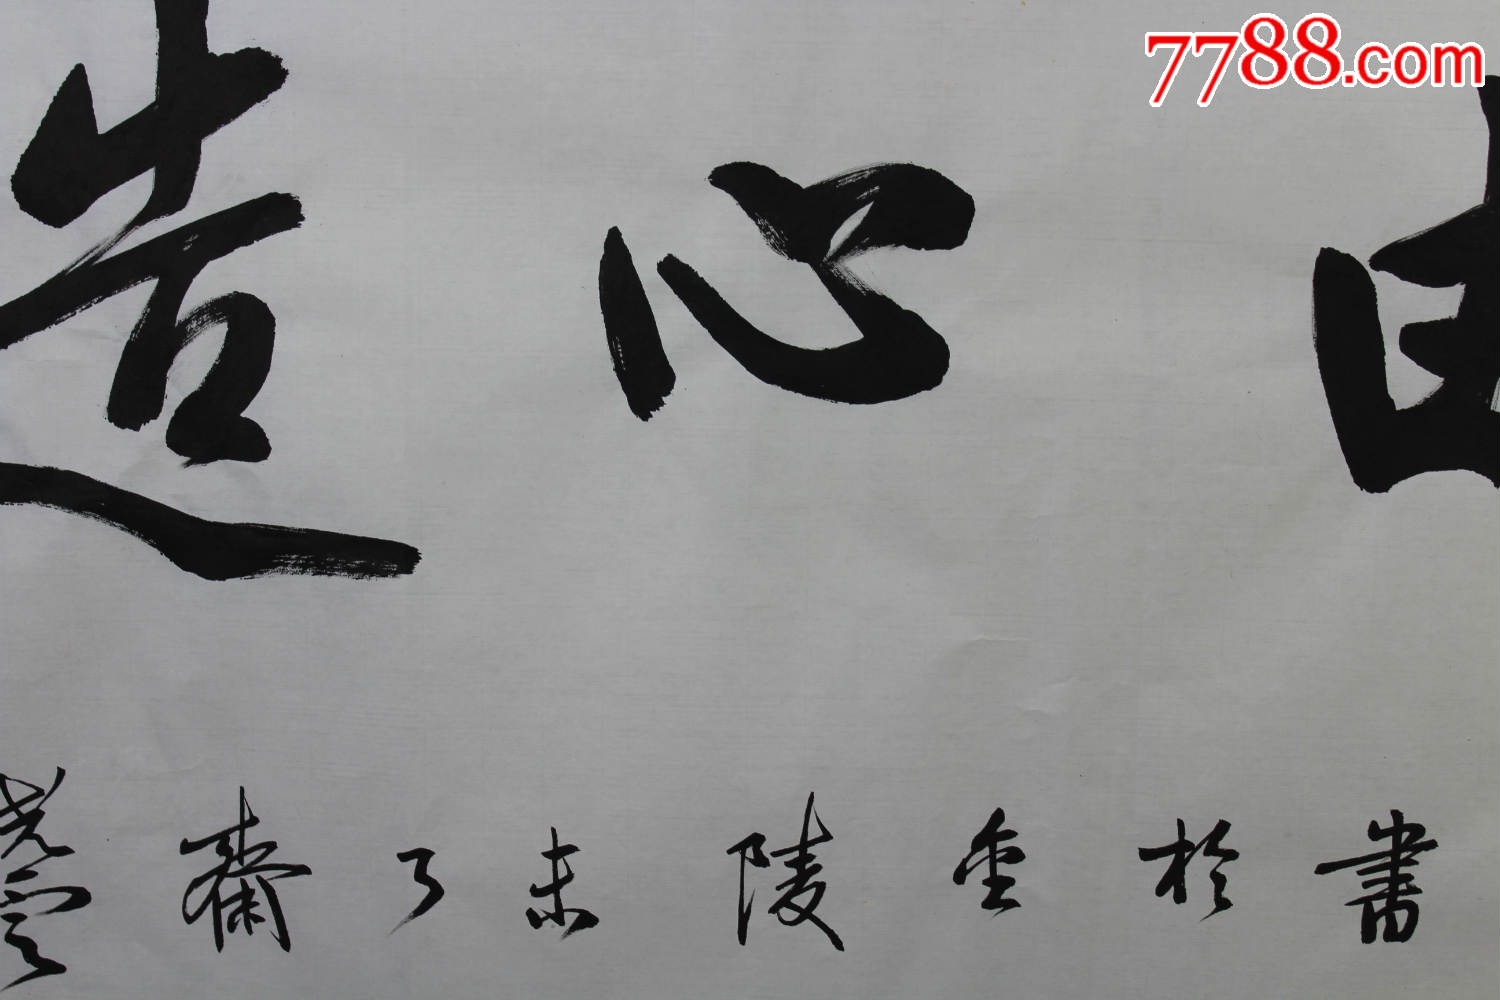 7788.com
由心造
書於金陵未了齋